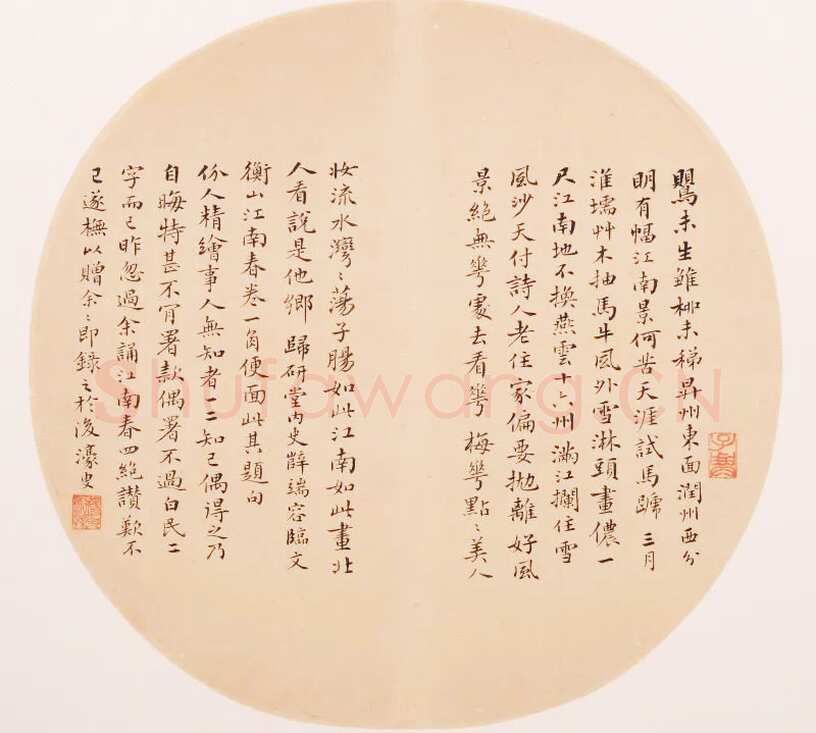 鶯未生雛柳未稊昇州東面潤州西分
明有幅江南景何苦天涯試馬蹏 三月
淮壖艸木抽馬牛風外雪淋頭畫儂一
尺江南地不換燕雲十六州 滿江攔住雪
風沙天付詩人老住家偏要抛離好風
景絕無雩處去看雩 梅雩點〻美人
妝流水灣〻蕩子腸如此江南如此畫北
人看說是他鄉 歸研堂內史薛端容臨文
衡山江南春卷一角便面此其題句
份人精繪事人無知者一二知己偶得之乃
自晦特甚不肯署款偶署不過白民二
字而已昨忽過余誦江南春四絕讚歎不
已遂橅以贈余〻即錄之於後濠叟
Shufawang.CN